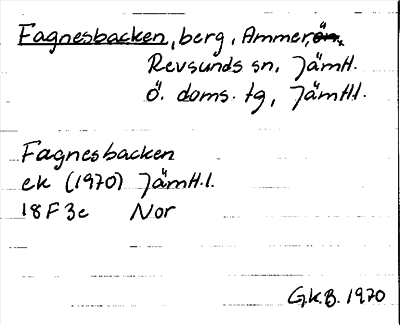 Fagnesbacken, berg, Ammer,
Revsunds sn, Jämtl.
Ö. doms. tg, Jämtl.l.
Fagnesbacken
ek (1970) Jämtl.l.
18F3e Nor
G.K.B. 1970